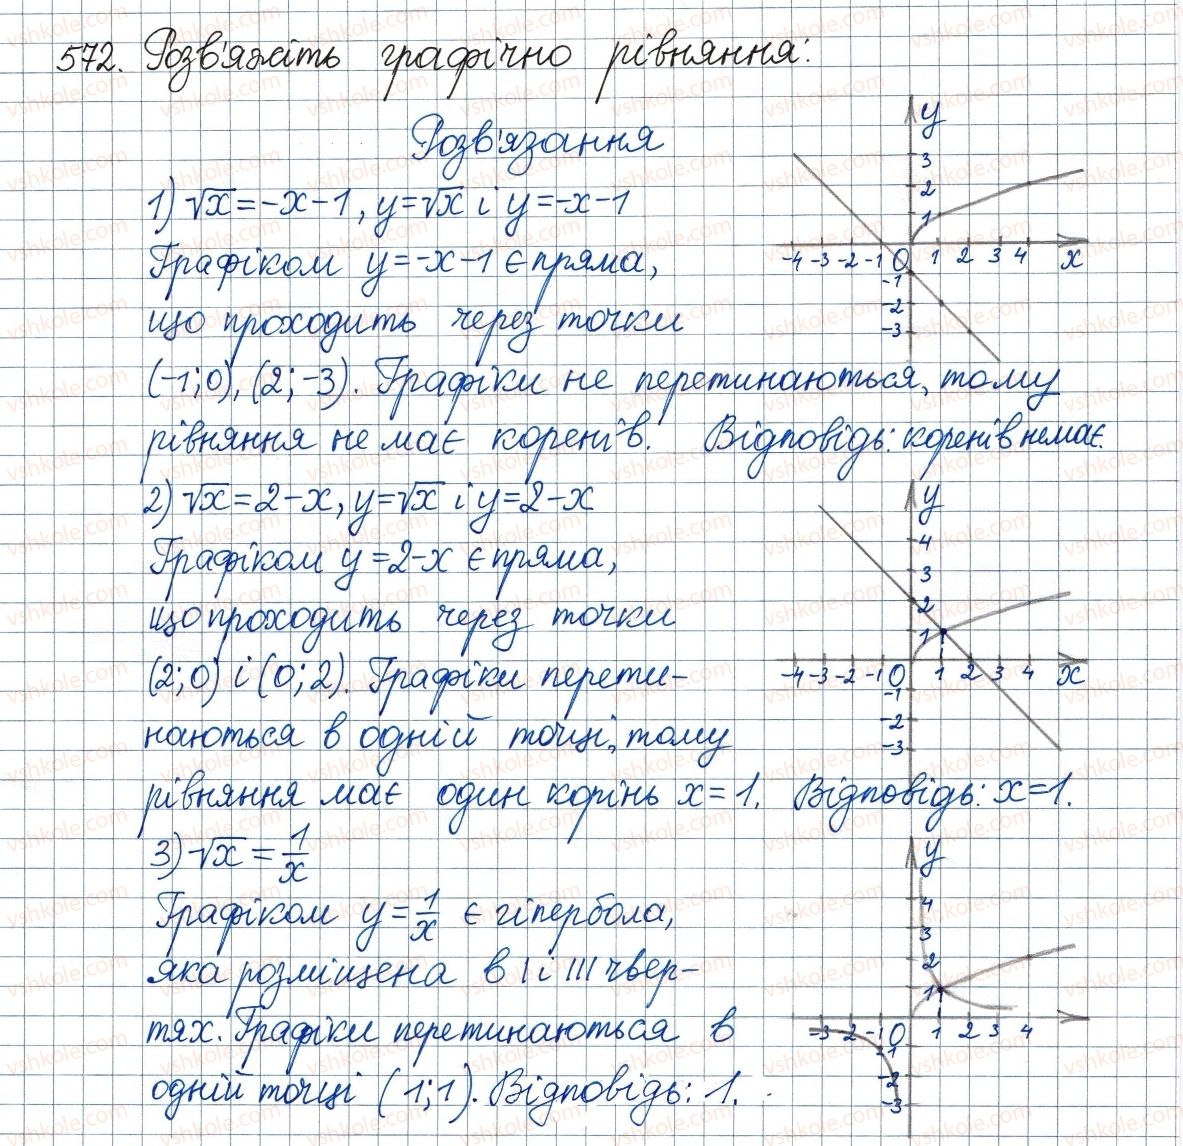 572. Розв'яжіть графічно рівняння:
Розв'язання
1) √x = -x - 1, y = √x і y = -x - 1
Графіком y = -x - 1 є пряма,
що проходить через точки
(-1; 0), (2; -3). Графіки не перетинаються, тому
рівняння не має коренів. Відповідь: коренів немає.
y
3
2
1
-4 -3 -2 -1 0 1 2 3 4 x
-1
-2
-3
2) √x = 2 - x, y = √x і y = 2 - x
Графіком y = 2 - x є пряма,
що проходить через точки
(2; 0) і (0; 2). Графіки перети-
наються в одній точці, тому
рівняння має один корінь x = 1. Відповідь: x = 1.
y
4
3
2
1
-4 -3 -2 -1 0 1 2 3 4 x
-1
-2
-3
3) √x = 1/x
Графіком y = 1/x є гіпербола,
яка розміщена в I і III чвер-
тях. Графіки перетинаються в
одній точці (1; 1). Відповідь: 1.
y
4
3
2
1
-3 -2 -1 0 1 2 3 4
-1
-2
-3
vshkole.com